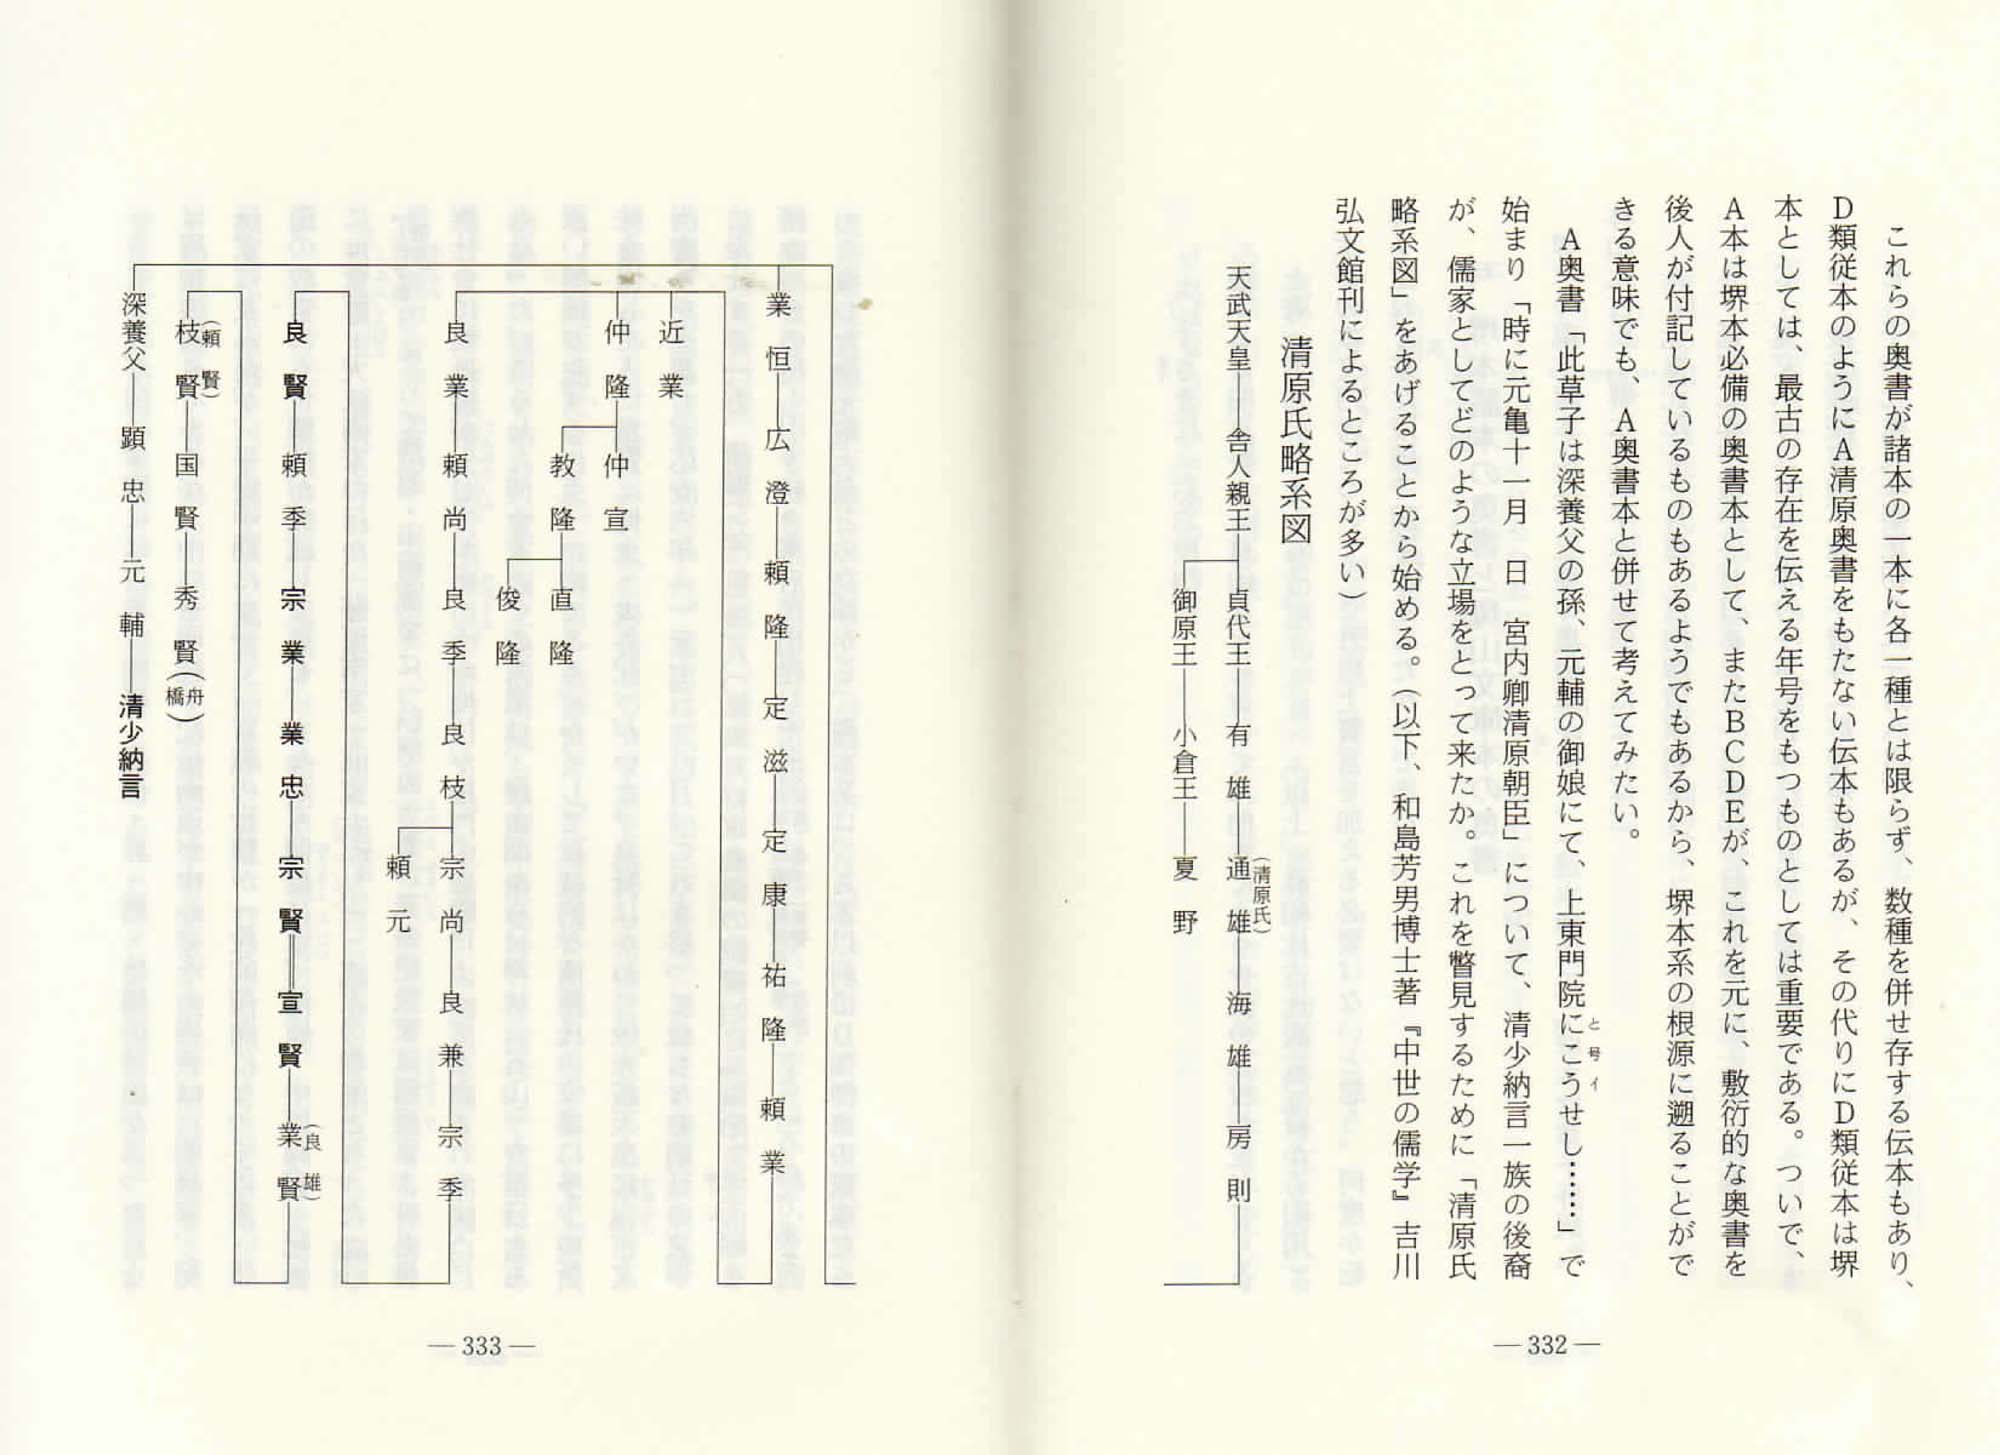 これらの奥書が諸本の一本に各一種とは限らず、数種を併せ存する伝本もあり、
Ｄ類従本のようにＡ清原奥書をもたない伝本もあるが、その代りにＤ類従本は堺
本としては、最古の存在を伝える年号をもつものとしては重要である。ついで、
Ａ本は堺本必備の奥書本として、またＢＣＤＥが、これを元に、敷衍的な奥書を
後人が付記しているものもあるようでもあるから、堺本系の根源に遡ることがで
きる意味でも、Ａ奥書本と併せて考えてみたい。
Ａ奥書「此草子は深養父の孫、元輔の御娘にて、上東門院にこうせし……」で
と号イ
始まり「時に元亀十一月　日　宮内卿清原朝臣」について、清少納言一族の後裔
が、儒家としてどのような立場をとって来たか。これを瞥見するために「清原氏
略系図」をあげることから始める。（以下、和島芳男博士著『中世の儒学』吉川
弘文館刊によるところが多い）
清原氏略系図
天武天皇―舎人親王―貞代王―有雄―通雄―海雄―房則
（清原氏）
御原王―小倉王―夏野
― 332 ―
業恒―広澄―頼隆―定滋―定康―祐隆―頼業
近業
仲隆―仲宣
教隆―直隆
俊隆
良業―頼尚―良季―良枝―宗尚―良兼―宗季
頼元
良賢―頼季―宗業―業忠―宗賢＝宣賢―業賢
（良雄）
枝賢―国賢―秀賢（舟橋）
（頼賢）
深養父―顕忠―元輔―清少納言
― 333 ―